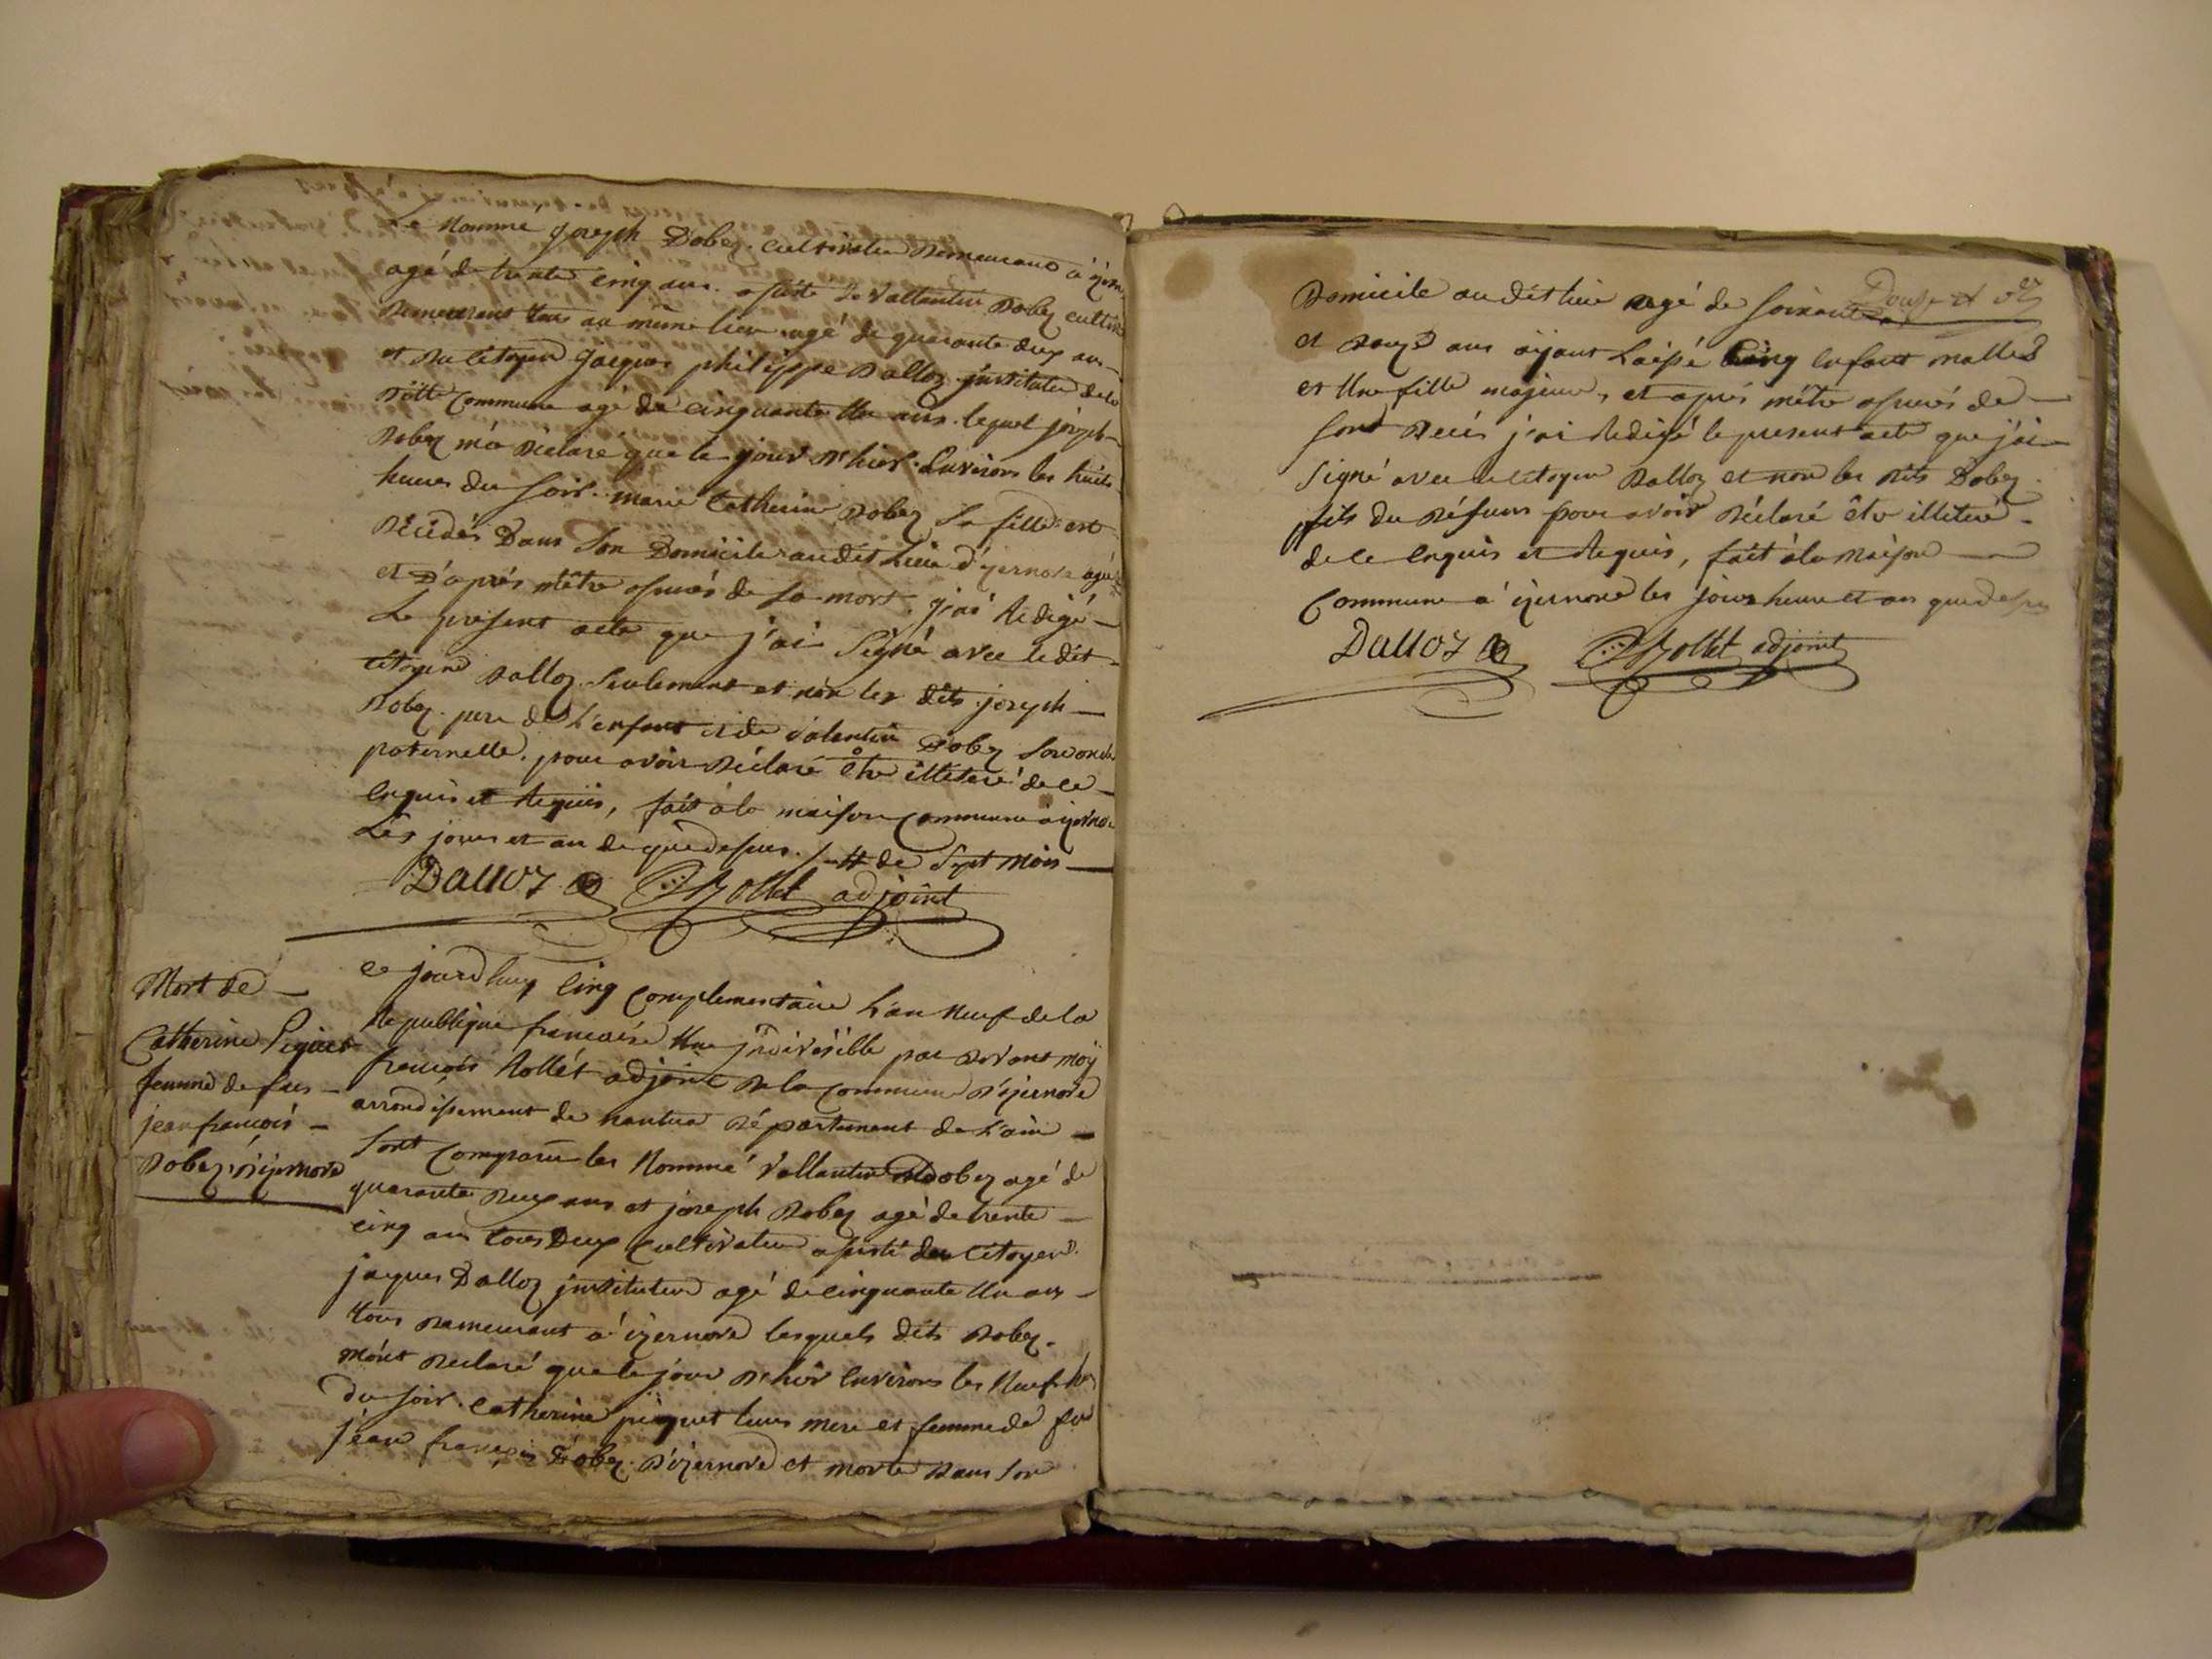 le Nommé joseph Dobez cultivateur Demeurant à izern
agé de trente cinq ans assisté de vallantin Dobez cultiva
Demeurant tous au même lieu agé de quarante deux ans
et du citoyen jacques philippe Dalloz instituteur de la
ditte commune agé de cinquante Un ans lequel joseph
Dobez m'a déclaré que le jour d'hier Environs les huits
heures du soir marie Catherine Dobez sa fille est
Décédés Dans Son Domicile audit Lieu d'izernore agé #
et D'aprés m'être assurés de sa mort, j'ai Redigé
Le présent acte que j'ai Signé avec ledit
citoyen Dalloz Seulement et non les dits joseph
Dobez pere de L'enfant et de valentin Dobez Son oncle
paternelle, pour avoir déclaré être illiteré de ce
enquis et Requis, fait à la maison commune à izernor
Les jours et an que dessus. # de Sept mois
Dalloz Rollet adjoint
Mort de
Catherine Piquet
femme de feu
jean françois
Dobez d'izernore
ce jourd'huy Cinq complementaire L'an Neuf de la
Republique francaise Une indivisible par devant moÿ
françois Rollét adjoint de la commune d'izernore
arrondissement de nantua Département de L'ain
Sont comparu les Nommé vallantin Dobez agé de
quarante deux ans et joseph Dobez agé de trente
cinq ans tous Deux cultivateur assisté du Citoyen
jaques Dalloz instituteur agé de cinquante Un ans
tous Demeurant à izernore lesquels dits Dobez
m'ont déclaré que le jour d'hier Environs les Neuf hrs
du soir Catherine piquet leurs mere et femme de feu
jean françois Dobez d'izernore et morte dans son
Douze et dr
Domicile audit lieu agé de soixante
et Douze ans aÿant Laissé Cinq Enfant malles
et Une fille majeure, et aprés m'être assurés de
son Décés j'ai Redigé le present acte que j'ai
Signé avec le citoyen Dalloz et non les dits Dobez
fils du Défunt pour avoir Déclaré être illiteré
de ce Enquis et Requis, fait à la Maison
Commune à izernore les jour heure et an que dessus
Dalloz Rollet adjoint